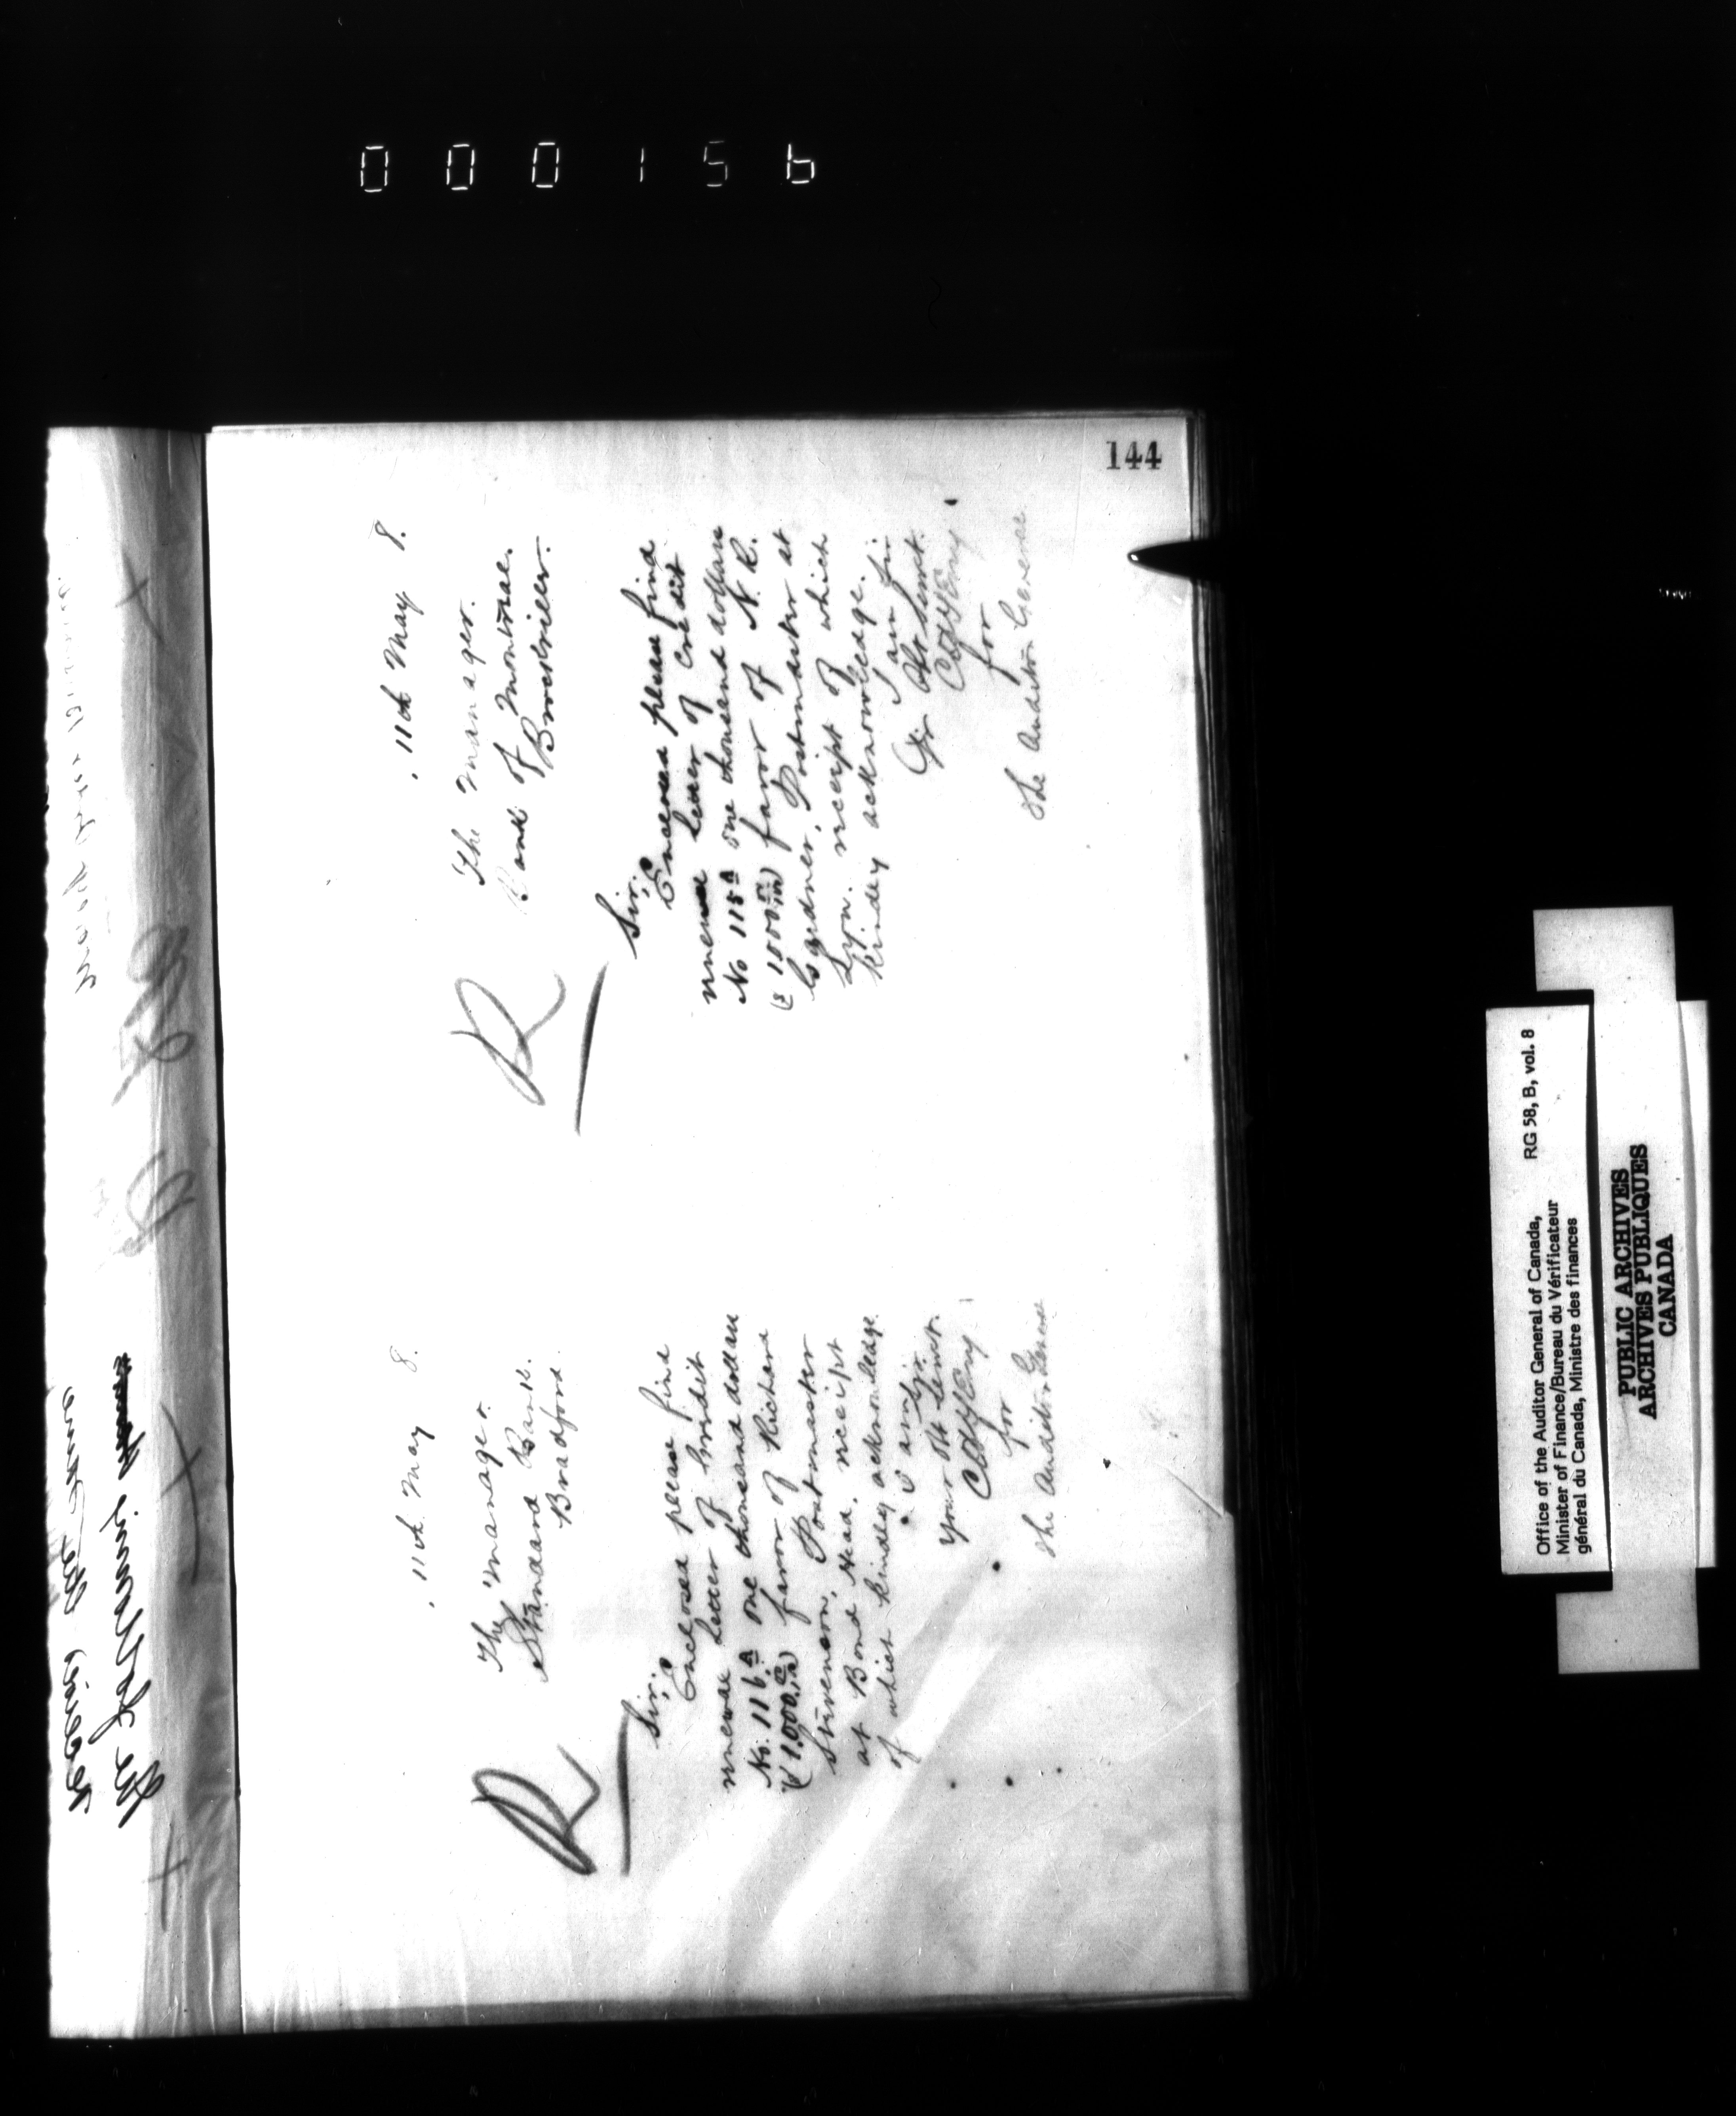 000156
144
11th May 8.
The Manager.
Standard Bank.
Bradford.
R
Sir,
Enclosed please find
renewal Letter of Credit
No. 116A one thousand dollars
($1.000.00) favor of Richard
Stevenson, Postmaster
at Bond Head, receipt
of which kindly acknowledge.
I am Sir,
Your Obt Servt.
for
The Auditor General
11th May 8.
The Manager.
Bank of Montreal.
Brockville.
R
Sir,
Enclosed please find
renewal Letter of Credit
No 115A one thousand dollars
($1000.00) favor of N. R.
Gardner, Postmaster at
Lyn. receipt of which
kindly acknowledge.
I am Sir
Obt Servt.
for
The Auditor General
Office of the Auditor General of Canada, RG 58, B, vol. 8
Minister of Finance/Bureau du Vérificateur
général du Canada, Ministre des finances
PUBLIC ARCHIVES
ARCHIVES PUBLIQUES
CANADA